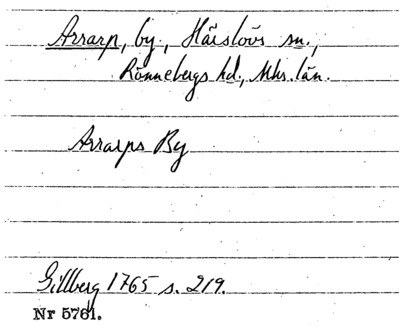 Arrarp, by., Härslövs sn.,
Rönnebergs hd., Mhs. län.
Arrarps By
Gillberg 1765 s. 219.
Nr 5761.